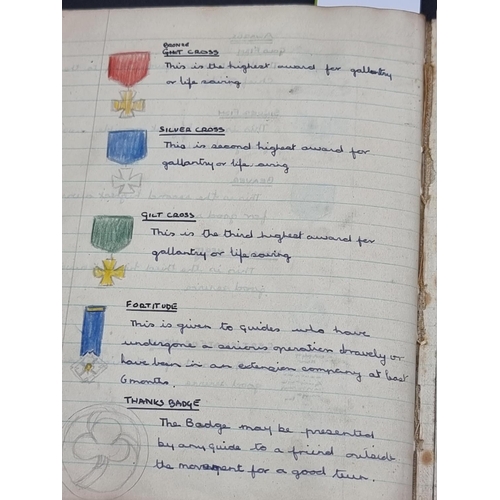 BRONZE
GILT CROSS
This is the highest award for gallantry
or life saving
SILVER CROSS
This is second highest award for
gallantry or life saving
GILT CROSS
This is the third highest award for
gallantry or life saving
FORTITUDE
This is given to Guides who have
undergone a serious operation bravely or
have been in an extension company at least
6 months.
THANKS BADGE
The Badge may be presented
by any guide to a friend outside
the movement for a good turn.